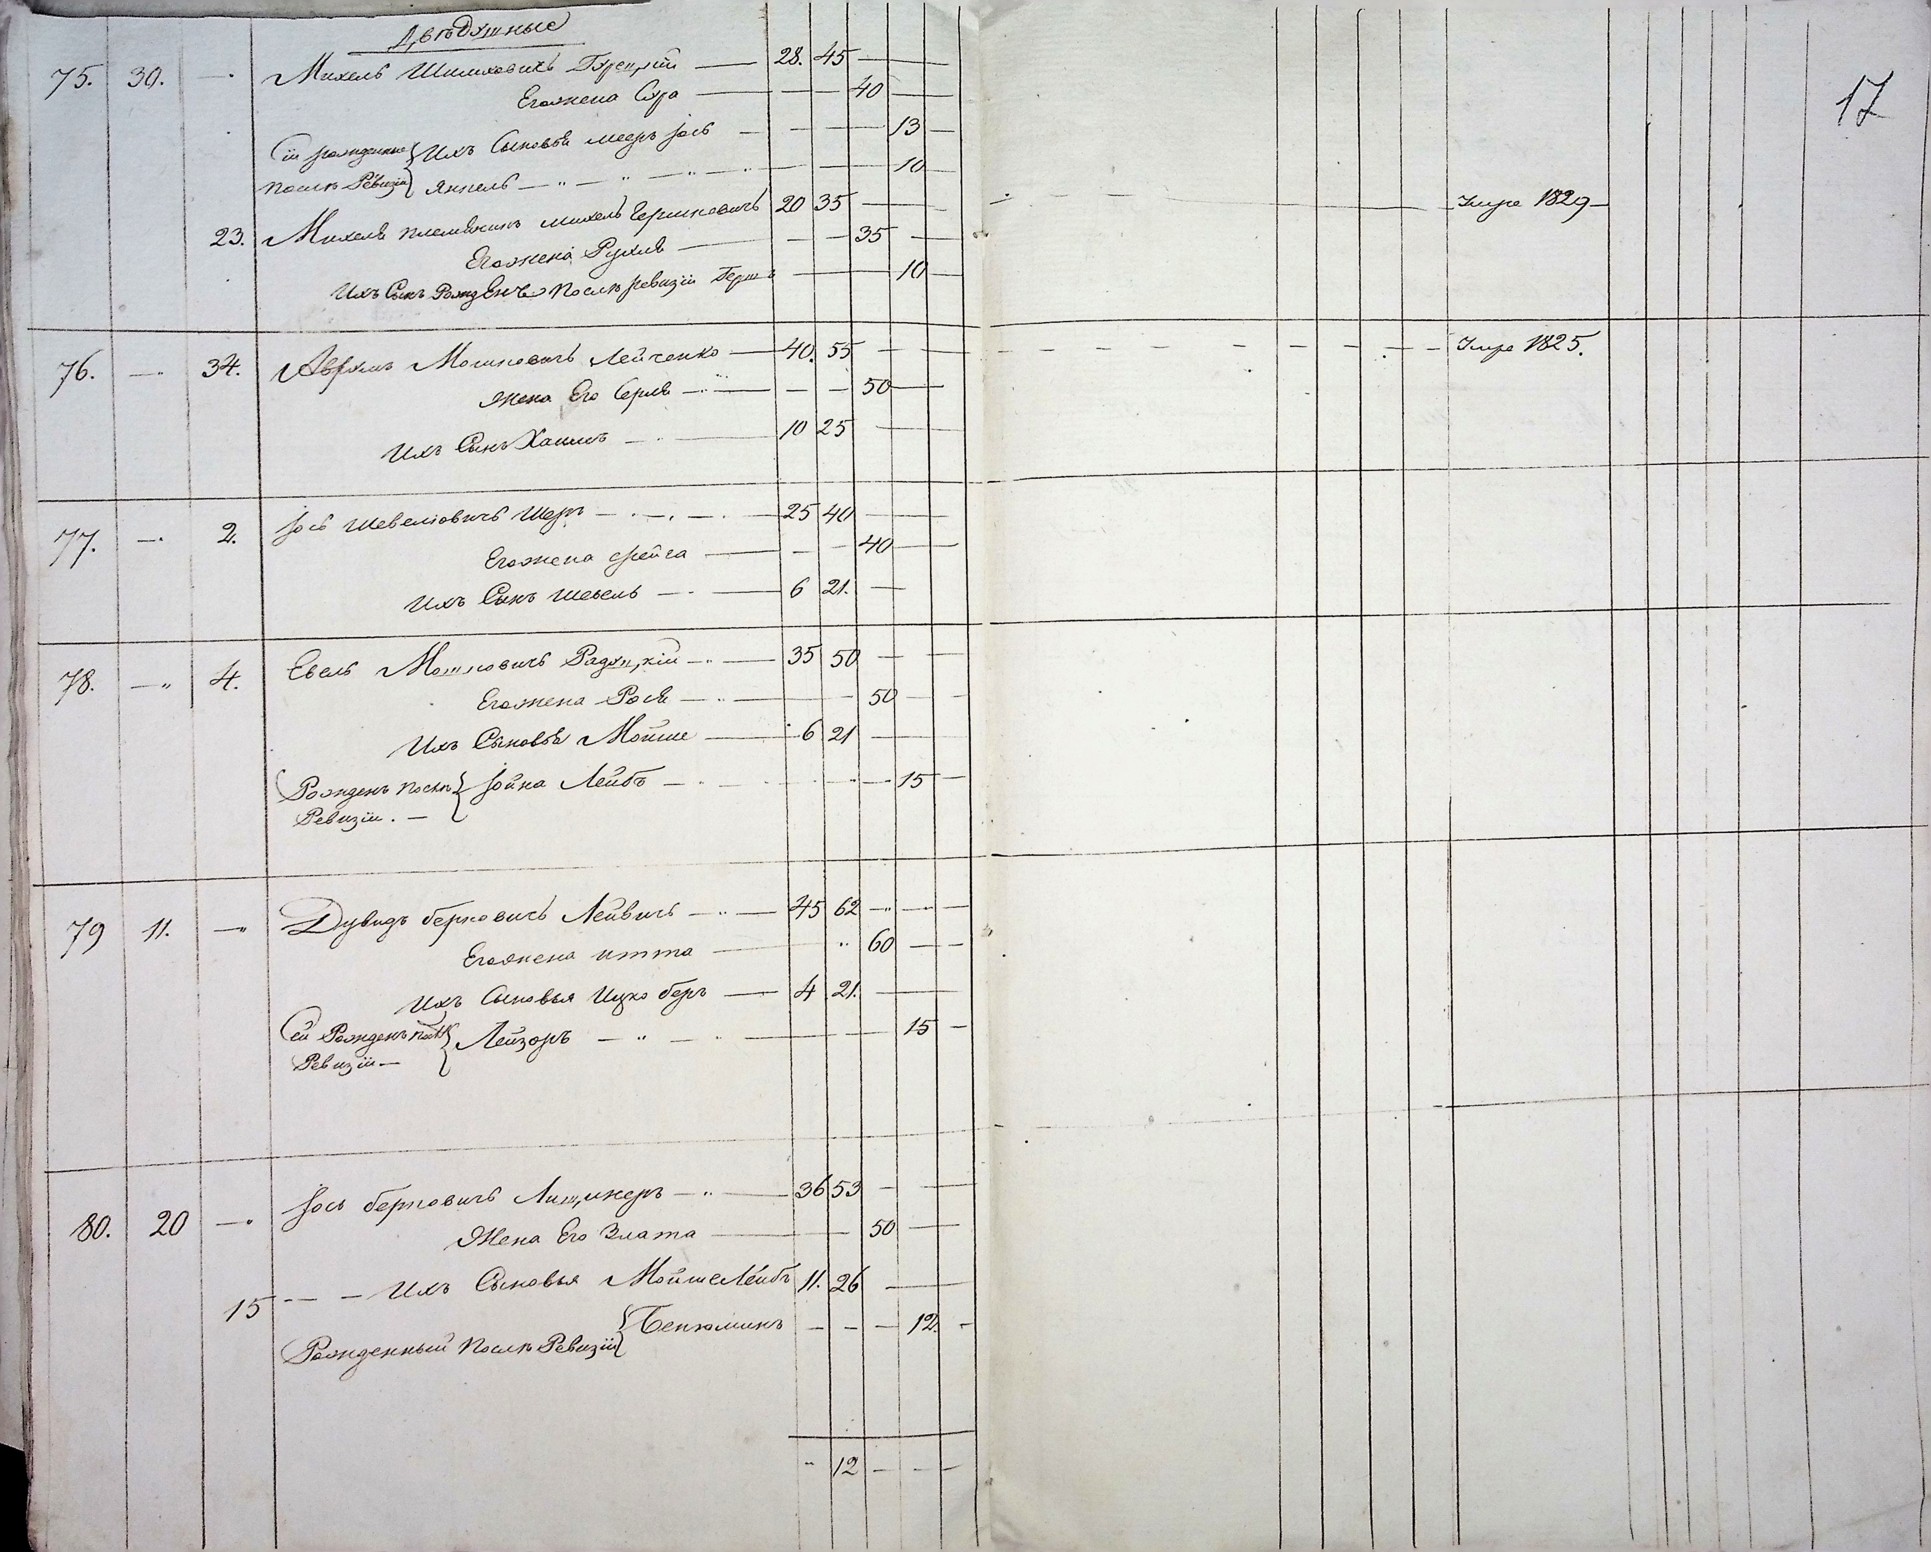 Двѣдушные
75. 30. — Михель Шмилковичъ Турецкій — 28. 45 — —
Егожена Сура — — — 40 —
Сіи рожденные Ихъ Сыновья мееръ Іось — — — — 13 —
Послѣ Ревизіи Янкель — — — — 10 —
23. Михеля племянникъ михель Гершковичъ 20 35 — — Умре 1829 —
Егожена Рухля — — — 35 —
Ихъ Сынъ Рожденъ Послѣ ревизіи Гершъ — — — 10 —
76. — 34. Аврумъ Мошковичъ Лейченко — 40. 55 — — Умре 1825.
Жена Его Серля — — — 50 —
Ихъ Сынъ Хаимъ — 10 25 — —
77. — 2. Іось Шевелiовичъ Шеръ — 25 40 — —
Егожена фрейга — — — 40 —
Ихъ Сынъ Шевель — 6 21. —
78. — 4. Евель Мошковичъ Радуцкій — 35 50 — —
Егожена Рося — — 50 — —
Ихъ Сыновья Мойше — 6 21 — —
Рожденъ послѣ Іойна Лейбъ — — — 15 —
Ревизіи. —
79 11. — Дувидъ берковичъ Лейвичъ — 45 62 — — —
Егожена итта — 60 — —
Ихъ Сыновья Ицко беръ — 4 21. — —
Сей Рожденъ послѣ Лейзоръ — — — 15 —
Ревизіи —
80. 20 — Іось берковичъ Лищинеръ — 36 53 — —
Жена Его Злата — — 50 —
15 — — Ихъ Сыновья МойшеЛейбъ 11. 26 — —
Бенюминъ — — — 12. —
Рожденный послѣ Ревизіи
12 — — —
17